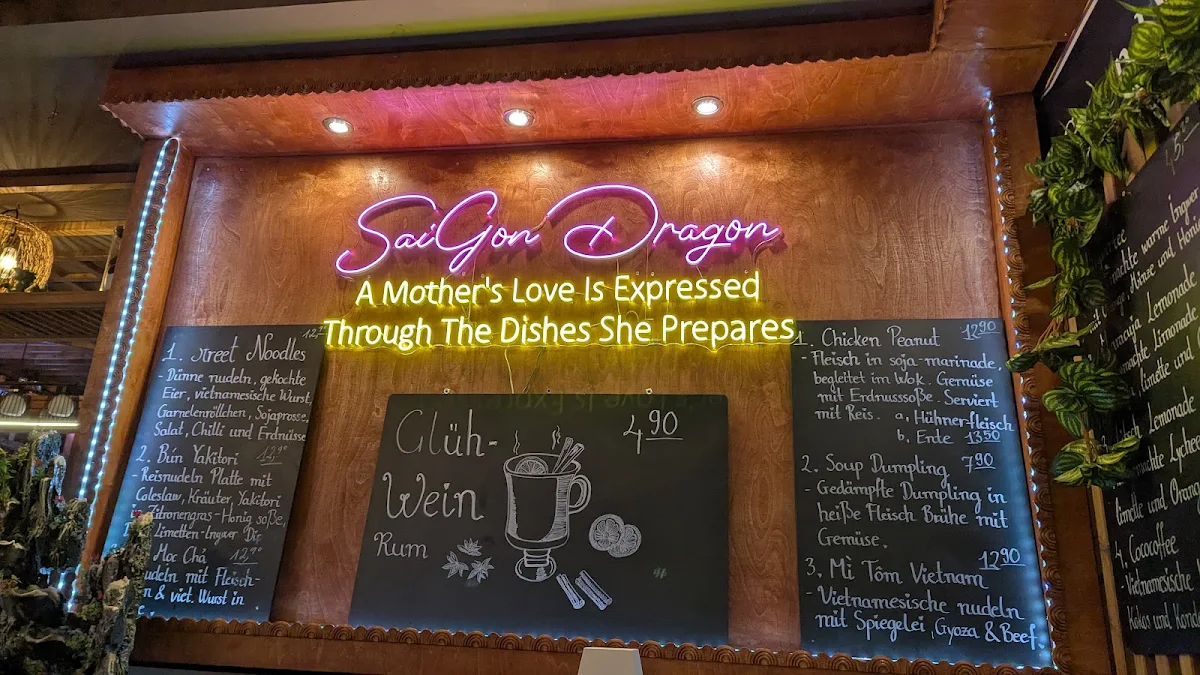 SaiGon Dragon
A Mother's Love Is Expressed
Through The Dishes She Prepares
1. Street Noodles
- Dünne nudeln, gekochte
Eier, vietnamesische Wurst,
Garnelenröllchen, Sojaprosse,
Salat, Chilli und Erdnüsse
2. Bún Yakitori
- Reisnudeln Platte mit
Coleslaw, Kräuter, Yakitori
Zitronengras-Honig soße,
Limetten-Ingwer Dip
Moc Chả
mit Fleisch-
& viet. Wurst in
Glüh- 4 90
Wein
Rum
1. Chicken Peanut 12 90
- Fleisch in soja-marinade,
begleitet im Wok. Gemüse
mit Erdnussoße. Serviert
mit Reis. a, Hühnerfleisch
b, Ente 13 50
2. Soup Dumpling 7 90
- Gedämpfte Dumpling in
heiße Fleisch Brühe mit
Gemüse.
12 90
3. Mì Tôm Vietnam
- Vietnamesische nudeln
mit Spiegelei, Gyoza & Beef.
warme Ingwer
Minze und
Limonade
Limonade
limette und
Limonade
limette und
4. Cococoffee
- Vietnamesische
Kakos und